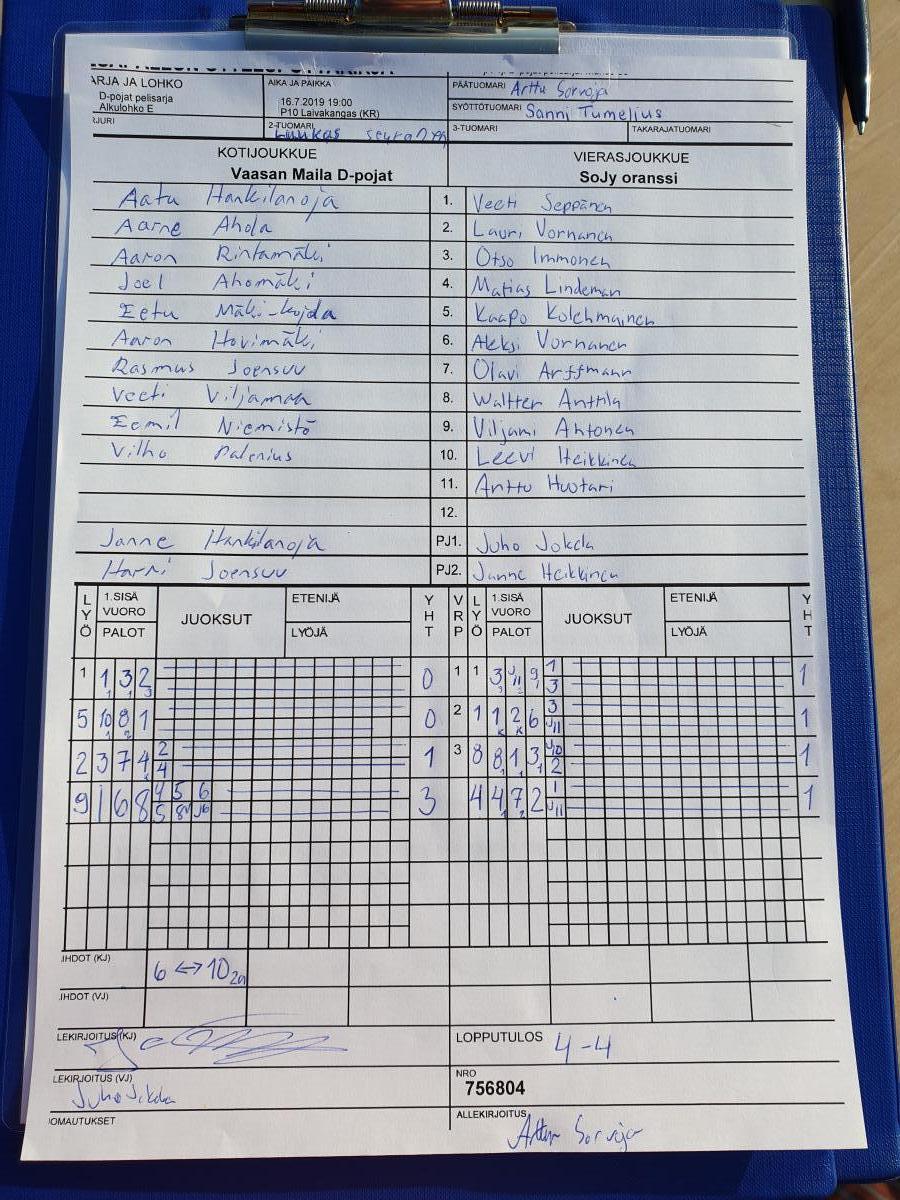 ARJA JA LOHKO
D-pojat pelisarja
Alkulohko E
AIKA JA PAIKKA
16.7.2019 19:00
P10 Laivakangas (KR)
PÄÄTUOMARI Arttu Sorvoja
SYÖTTÖTUOMARI Sanni Tumelius
2-TUOMARI Luukas
3-TUOMARI
TAKARAJATUOMARI
KOTIJOUKKUE VIERASJOUKKUE
Vaasan Maila D-pojat SoJy oranssi
Aatu Hankilanoja 1. Veeti Seppänen
Aarne Ahola 2. Lauri Vornanen
Aaron Rintamäki 3. Otso Immonen
Joel Ahomäki 4. Matias Lindeman
Eetu 5. Kaapo Kolehmainen
Aaron Hovimäki 6. Aleksi Vornanen
Rasmus Joensuu 7. Olavi Arffmann
Veeti Viljamaa 8. Waltter Anttila
Eemil Niemistö 9. Viljami Ahtonen
Vilho Palenius 10. Leevi Heikkinen
11. Anttu Huotari
12.
Janne Hankilanoja PJ1. Juho Jokela
Harri Joensuu PJ2. Janne Heikkinen
LYÖ 1.SISÄ VUORO PALOT JUOKSUT ETENIJÄ LYÖJÄ YHT VRP LYÖ 1.SISÄ VUORO PALOT JUOKSUT ETENIJÄ LYÖJÄ YHT
1 1 3 2 0 1 1 3 9 1 3 1
5 10 8 1 0 2 1 1 2 6 3 1
2 3 7 4 2 4 1 3 8 8 1 3 2 1
9 1 6 8 4 5 6 5 3 4 4 7 2 1 1
IHDOT (KJ) 6 <-> 10 2a
IHDOT (VJ)
LEKIRJOITUS (KJ)
LOPPUTULOS 4-4
LEKIRJOITUS (VJ)
Juho Jokela
NRO
756804
OMAUTUKSET
ALLEKIRJOITUS
Arttu Sorvoja